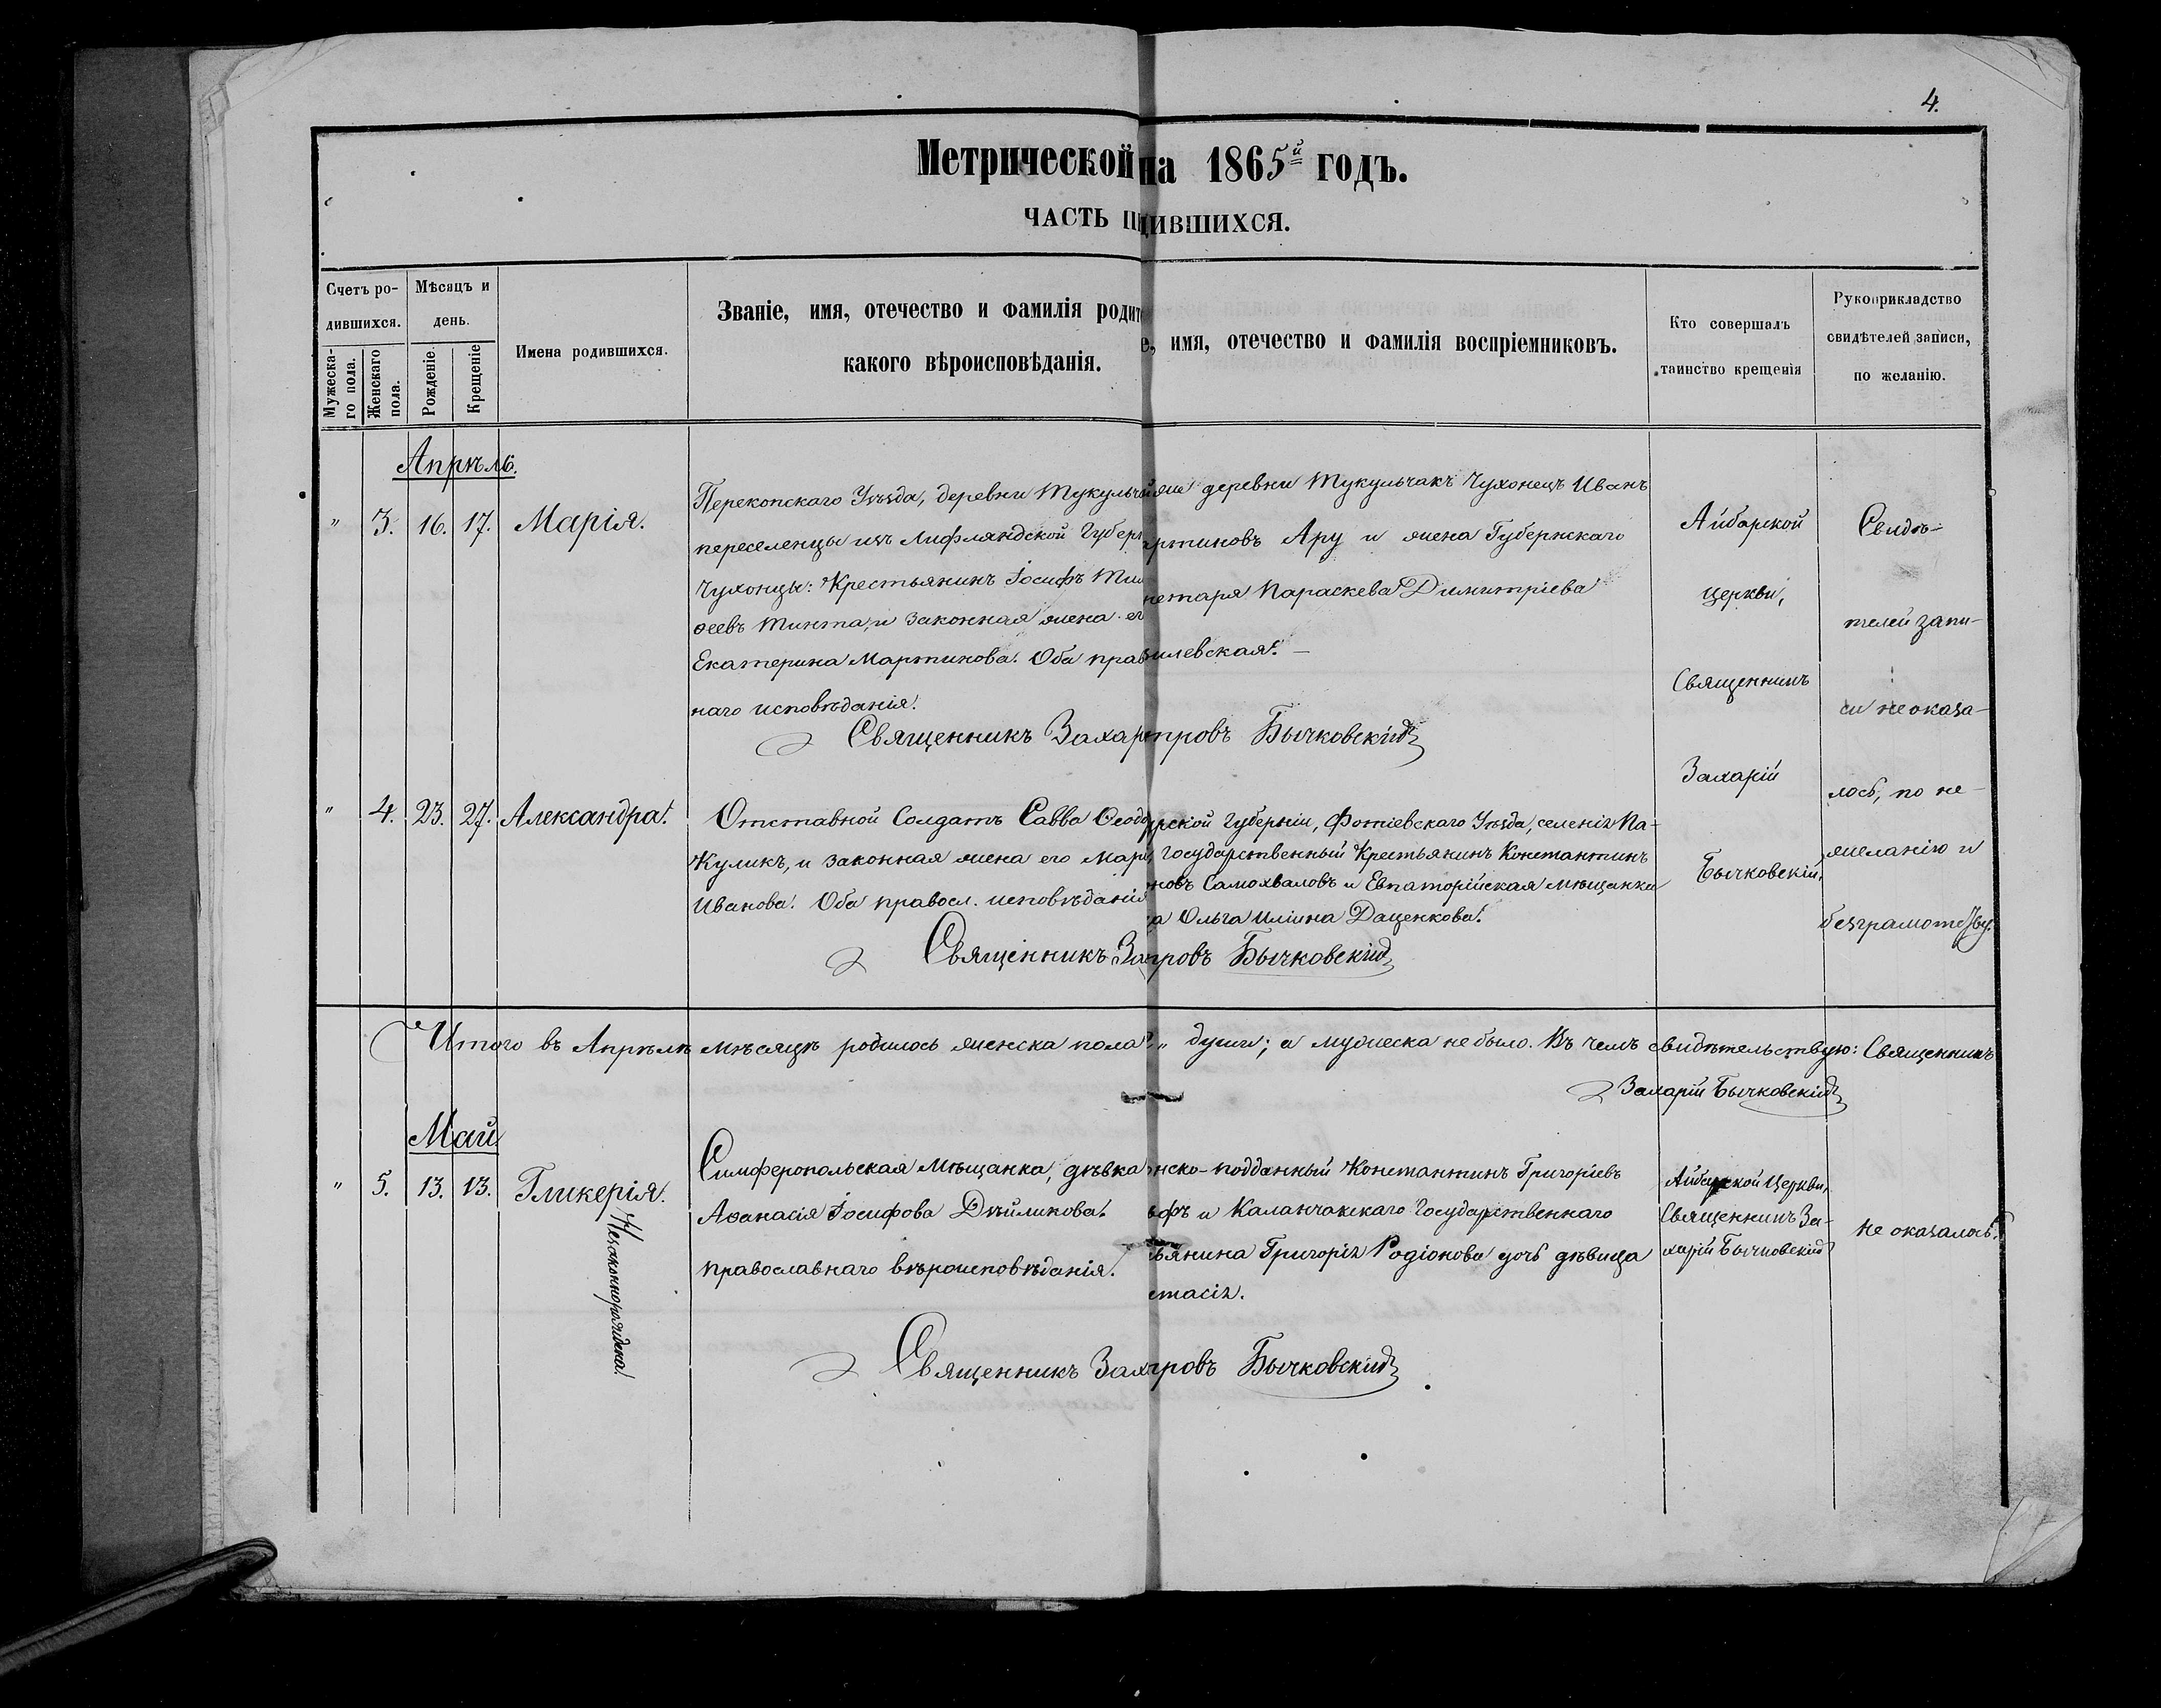 4.
Метрической на 1865й годъ.
ЧАСТЬ П ДИВШИХСЯ.
Счетъ ро-
дившихся.
Мужеска-
го пола.
Женскаго
пола.
Мѣсяцъ и
день.
Рожденіе.
Крещеніе
Имена родившихся.
Званіе, имя, отечество и фамилія родит
какого вѣроисповѣданія.
е, имя, отечество и фамилія воспріемниковъ.
Кто совершалъ
таинство крещенія
Рукоприкладство
свидѣтелей записи,
по желанію.
Апрѣль.
" 3. 16. 17. Марія.
Перекопскаго Уѣзда, деревни Тукульч
переселенцы изъ Лифляндской Губер
Чухонцы: Крестьянинъ Іосифъ Тим
ѳеевъ Тинта, и законная жена ег
Екатерина Мартинова. Оба прав
наго исповѣданія.
же деревни Тукульчакъ Чухонецъ Иванъ
ртиновъ Ару и жена Губернскаго
ретаря Параскева Димитріева
силевская. —
Айбарской
церкви,
Священникъ
Захарій
Бычковскій,
Свидѣ-
телей запи-
си не оказа-
лось, по не-
желанію и
безграмотству.
Священникъ Захар провъ Бычковскій
" 4. 23. 27. Александра.
Отставной Солдатъ Савва Ѳеодо
Куликъ, и законная жена его Марі
Иванова. Оба правосл. исповѣданія
рской губерніи, Фотіевскаго Уѣзда, селенія Па-
, Государственный Крестьянинъ Константинъ
новъ Самохваловъ и Евпаторійская мѣщанка
а Ольга Иліина Даценкова.
Священникъ За провъ Бычковскій
Итого въ Апрѣлѣ мѣсяцѣ родилось женска пола 2 „ души; а мужеска не было. Въ чемъ свидѣтельствую: Священникъ
Захарій Бычковскій
Май.
" 5. 13. 13. Гликерія.
Незаконнорожденна.
Симферопольская Мѣщанка, дѣвка
Аѳанасія Іосифова Дѣйликова.
православнаго вѣроисповѣданія.
нско-подданный Константинъ Григоріевъ
фъ и Каланчакскаго Государственнаго
ьянина Григорія Родіонова дочь дѣвица
стасія.
Айбарской Церкви,
Священникъ За-
харій Бычковскій
Не оказалось.
Священникъ Зах провъ Бычковскій